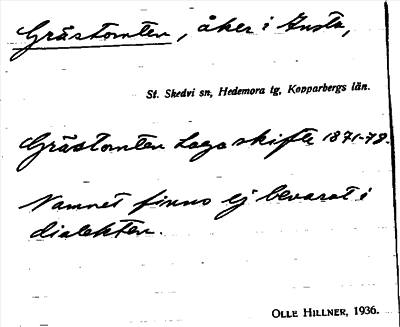 Grästomten, åker i Gusta,
St. Skedvi sn, Hedemora tg, Kopparbergs län.
Grästomten Laga skifte 1871-78.
Namnet finns ej bevarat i
dialekten.
OLLE HILLNER, 1936.